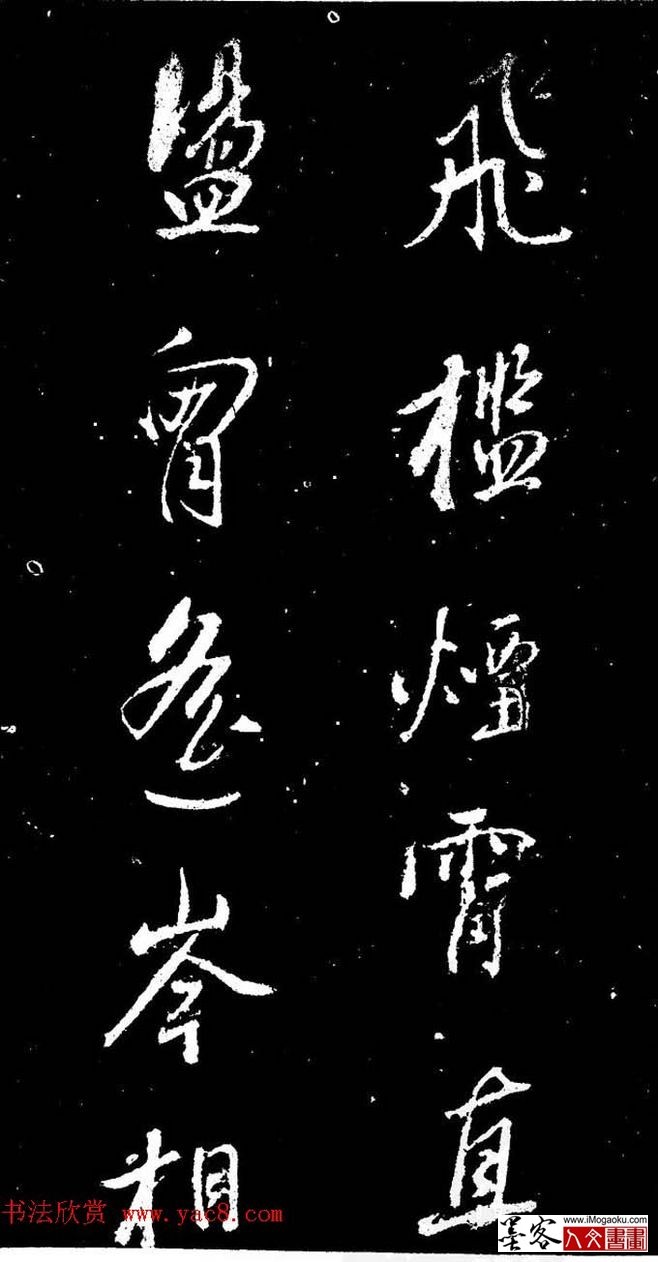 飛檻煙霄直
盪胷岑相
书法欣赏 www.yac8.com
墨客 www.iMogaoku.com
人文書畫